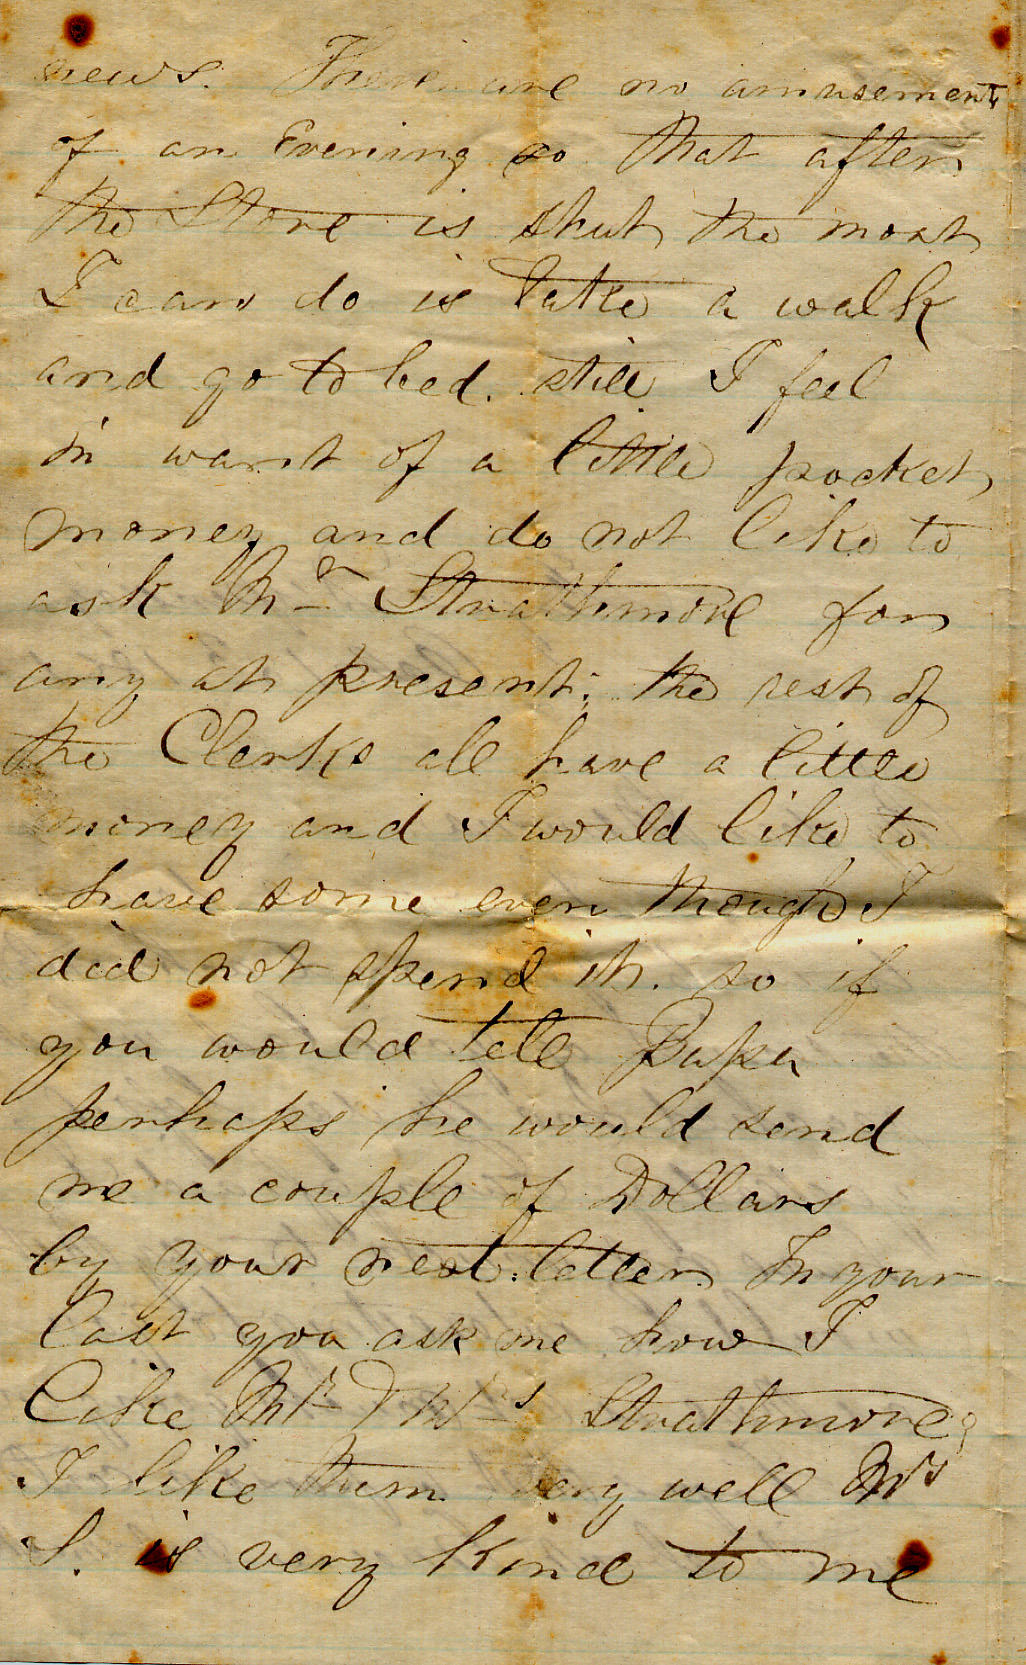 news. There are no amusements
of an Evening so that after
the Store is shut the most
I can do is take a walk
and go to bed. still I feel
in want of a little pocket
money and do not like to
ask Mr Strathmore for
any at present; the rest of
the Clerks all have a little
money and I would like to
have some even though I
did not spend it. so if
you would tell Papa
perhaps he would send
me a couple of Dollars
by your next letter In your
last you ask me how I
like Mr & Mrs Strathmore?
I like them very well Mrs
S. is very kind to me